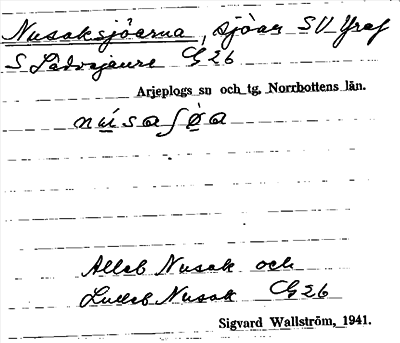 Nusaksjöarna, sjöar SV Graf
S Lädvajaure G 26
Arjeplogs sn och tg, Norrbottens län.
núsaʃøa
Alleb Nusak och
Lulleb Nusak G 26
Sigvard Wallström, 1941.